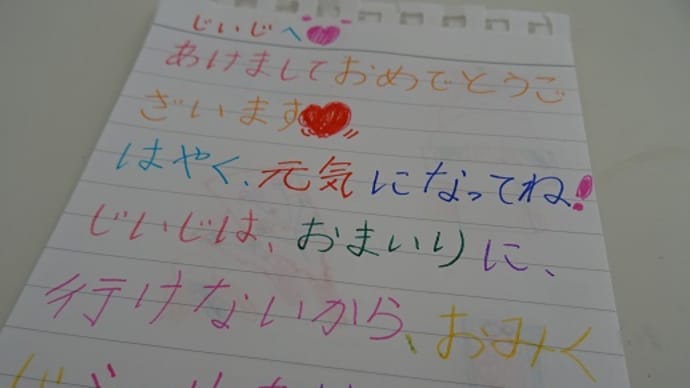 じいじへ
あけましておめでとうご
ざいます
はやく、元気になってね!
じいじは、おまいりに、
行けないから、おみく